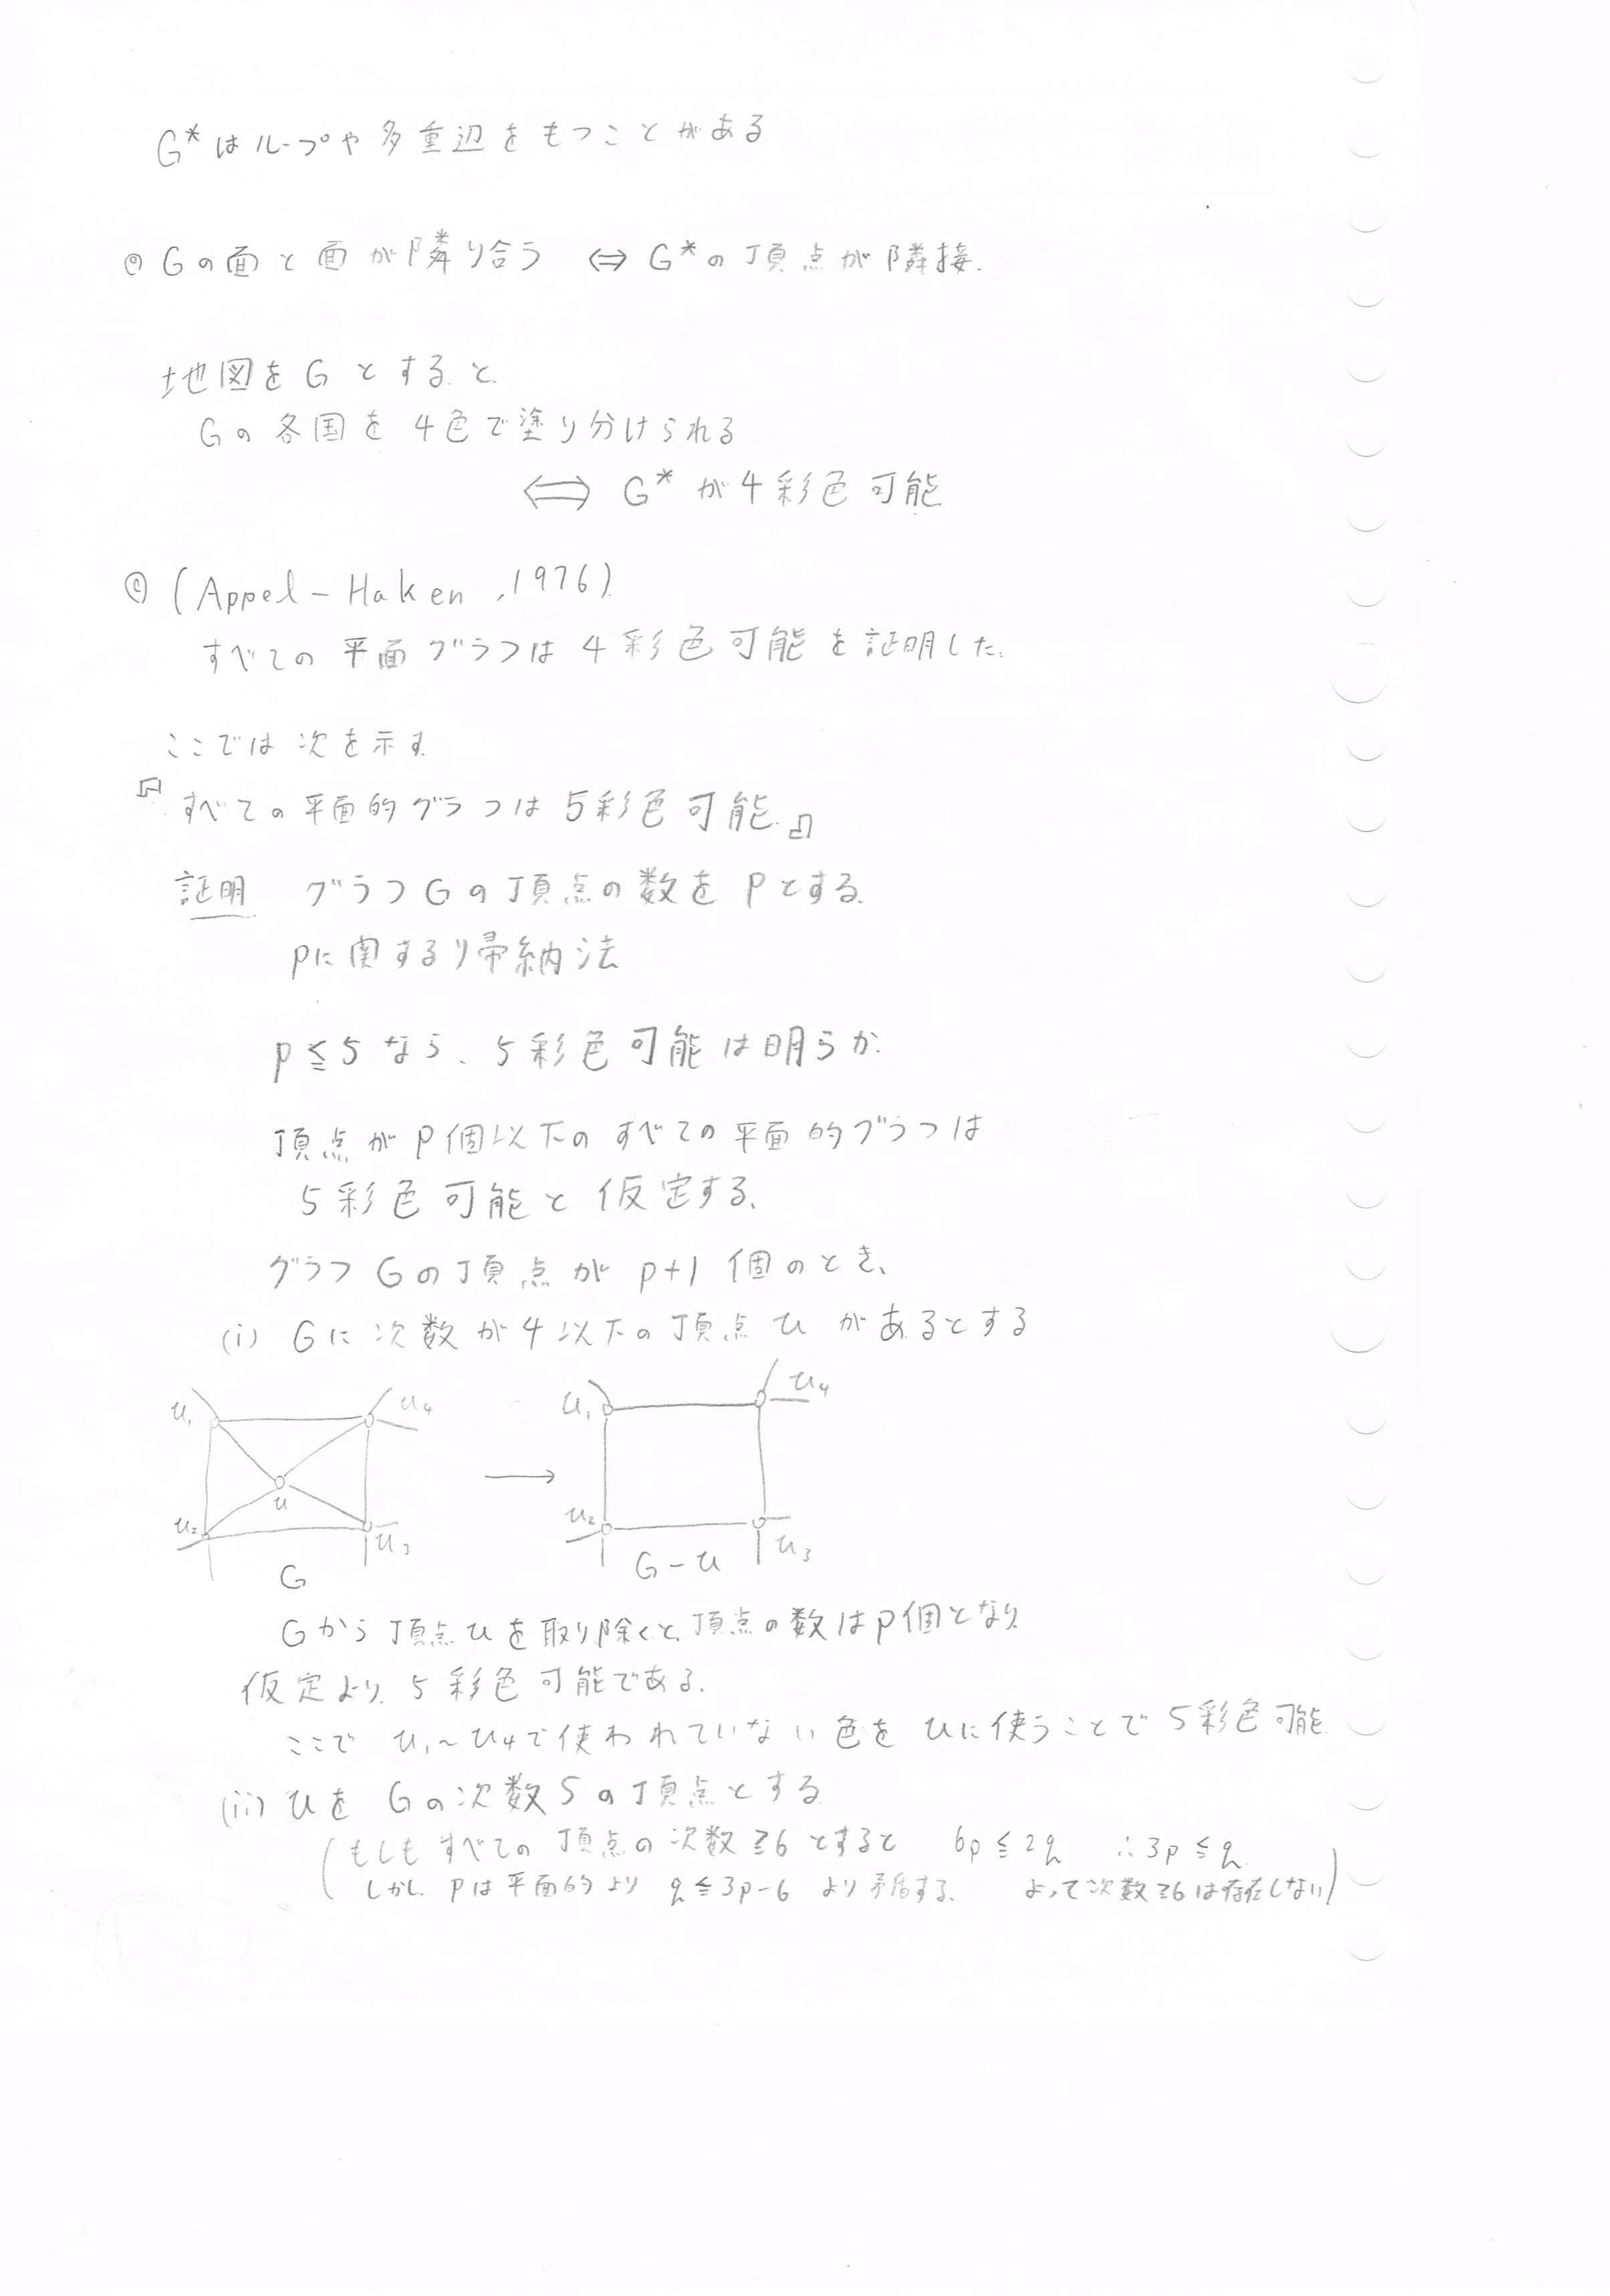 G*はループや多重辺をもつことがある
◎ Gの面と面が隣り合う ⇔ G*の頂点が隣接.
地図をGとすると
Gの各国を4色で塗り分けられる
⇔ G*が4彩色可能
◎ (Appel-Haken, 1976)
すべての平面グラフは4彩色可能を証明した.
ここでは次を示す
『すべての平面的グラフは5彩色可能.』
証明 グラフGの頂点の数をpとする.
pに関する帰納法
p≦5なら、5彩色可能は明らか.
頂点がp個以下のすべての平面的グラフは
5彩色可能と仮定する.
グラフGの頂点がp+1個のとき、
(i) Gに次数が4以下の頂点uがあるとする
u₁ u₄ u u₂ u₃ G
→
u₁ u₄ u₂ u₃ G-u
Gから頂点uを取り除くと、頂点の数はp個となり
仮定より、5彩色可能である.
ここで u₁~u₄で使われていない色をuに使うことで5彩色可能
(ii) uをGの次数5の頂点とする
(もしもすべての頂点の次数≧6とすると 6p≦2q ∴3p≦q
しかし、pは平面的より q≦3p-6 より矛盾する. よって次数≧6は存在しない)